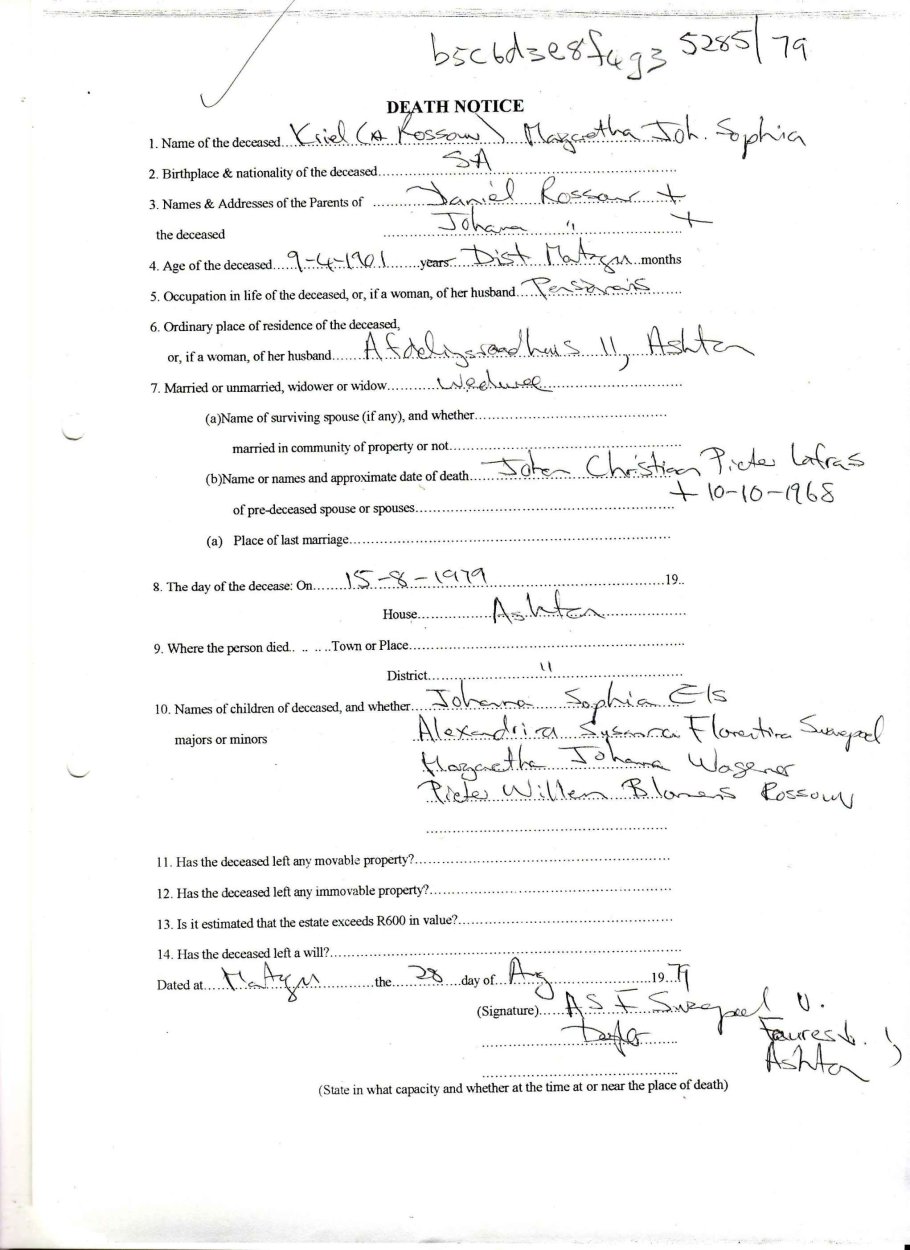 b5c6d3e8f4g3 5285/79
DEATH NOTICE
1. Name of the deceased Kriel (A Rossouw) Margaretha Joh. Sophia
2. Birthplace & nationality of the deceased SA
3. Names & Addresses of the Parents of Daniel Rossouw +
the deceased Johanna " +
4. Age of the deceased 9-4-1901 years Dist Matzgu months
5. Occupation in life of the deceased, or, if a woman, of her husband
6. Ordinary place of residence of the deceased,
or, if a woman, of her husband Afdelingsraadhuis 11, Ashton
7. Married or unmarried, widower or widow Weduwee
(a)Name of surviving spouse (if any), and whether
married in community of property or not
(b)Name or names and approximate date of death Johan Christian Pieter Lafras
+ 10-10-1968
of pre-deceased spouse or spouses
(a) Place of last marriage
8. The day of the decease: On 15-8-1979 19..
House Ashton
9. Where the person died.. .. .. ..Town or Place
District "
10. Names of children of deceased, and whether Johanna Sophia Els
majors or minors Alexandrina Susanna Florentina Swiegel
Margaretha Johanna Wagener
Pieter Willem Blomerus Rossouw
11. Has the deceased left any movable property?
12. Has the deceased left any immovable property?
13. Is it estimated that the estate exceeds R600 in value?
14. Has the deceased left a will?
Dated at the 28 day of Aug 19 79
(Signature) A S F Swiegel v.
Fauresb.
Ashton
(State in what capacity and whether at the time at or near the place of death)